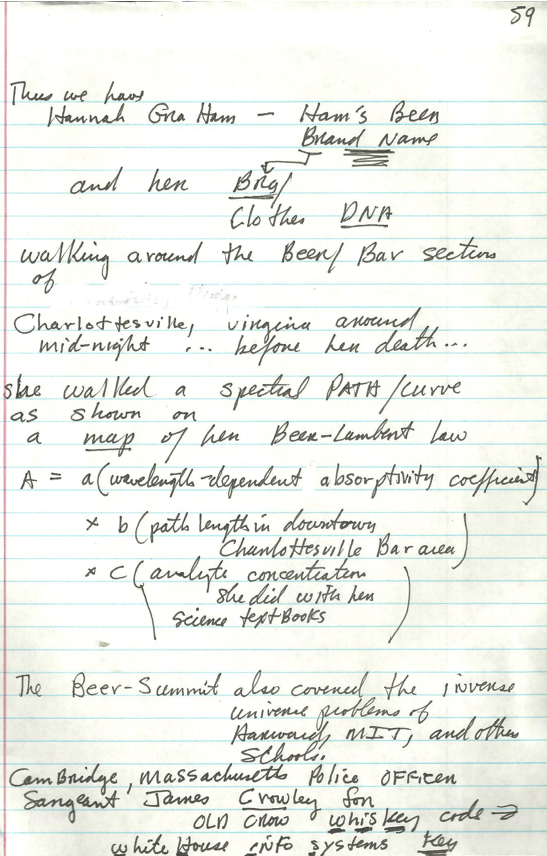 59
Thus we have
Hannah Gra Ham – Ham's Beer
Brand Name
and her Bra/
Clothes DNA
walking around the Beer/ Bar section
of
Charlottesville, virgina around
mid-night ... before her death...
she walked a spectral PATH/curve
as shown on
a map of her Beer-Lambert law
A = a (wavelength-dependent absorptivity coefficient)
x b (path length in downtown
Charlottesville Bar area)
x C (analyte concentration
she did with her
science textBooks)
The Beer-Summit also covered the inverse
universe problems of
Harvard, MIT, and other
schools.
CamBridge, Massachusetts Police OFFicer
Sangeant James Crowley for
OLD Crow whiskey code →
white House info systems key